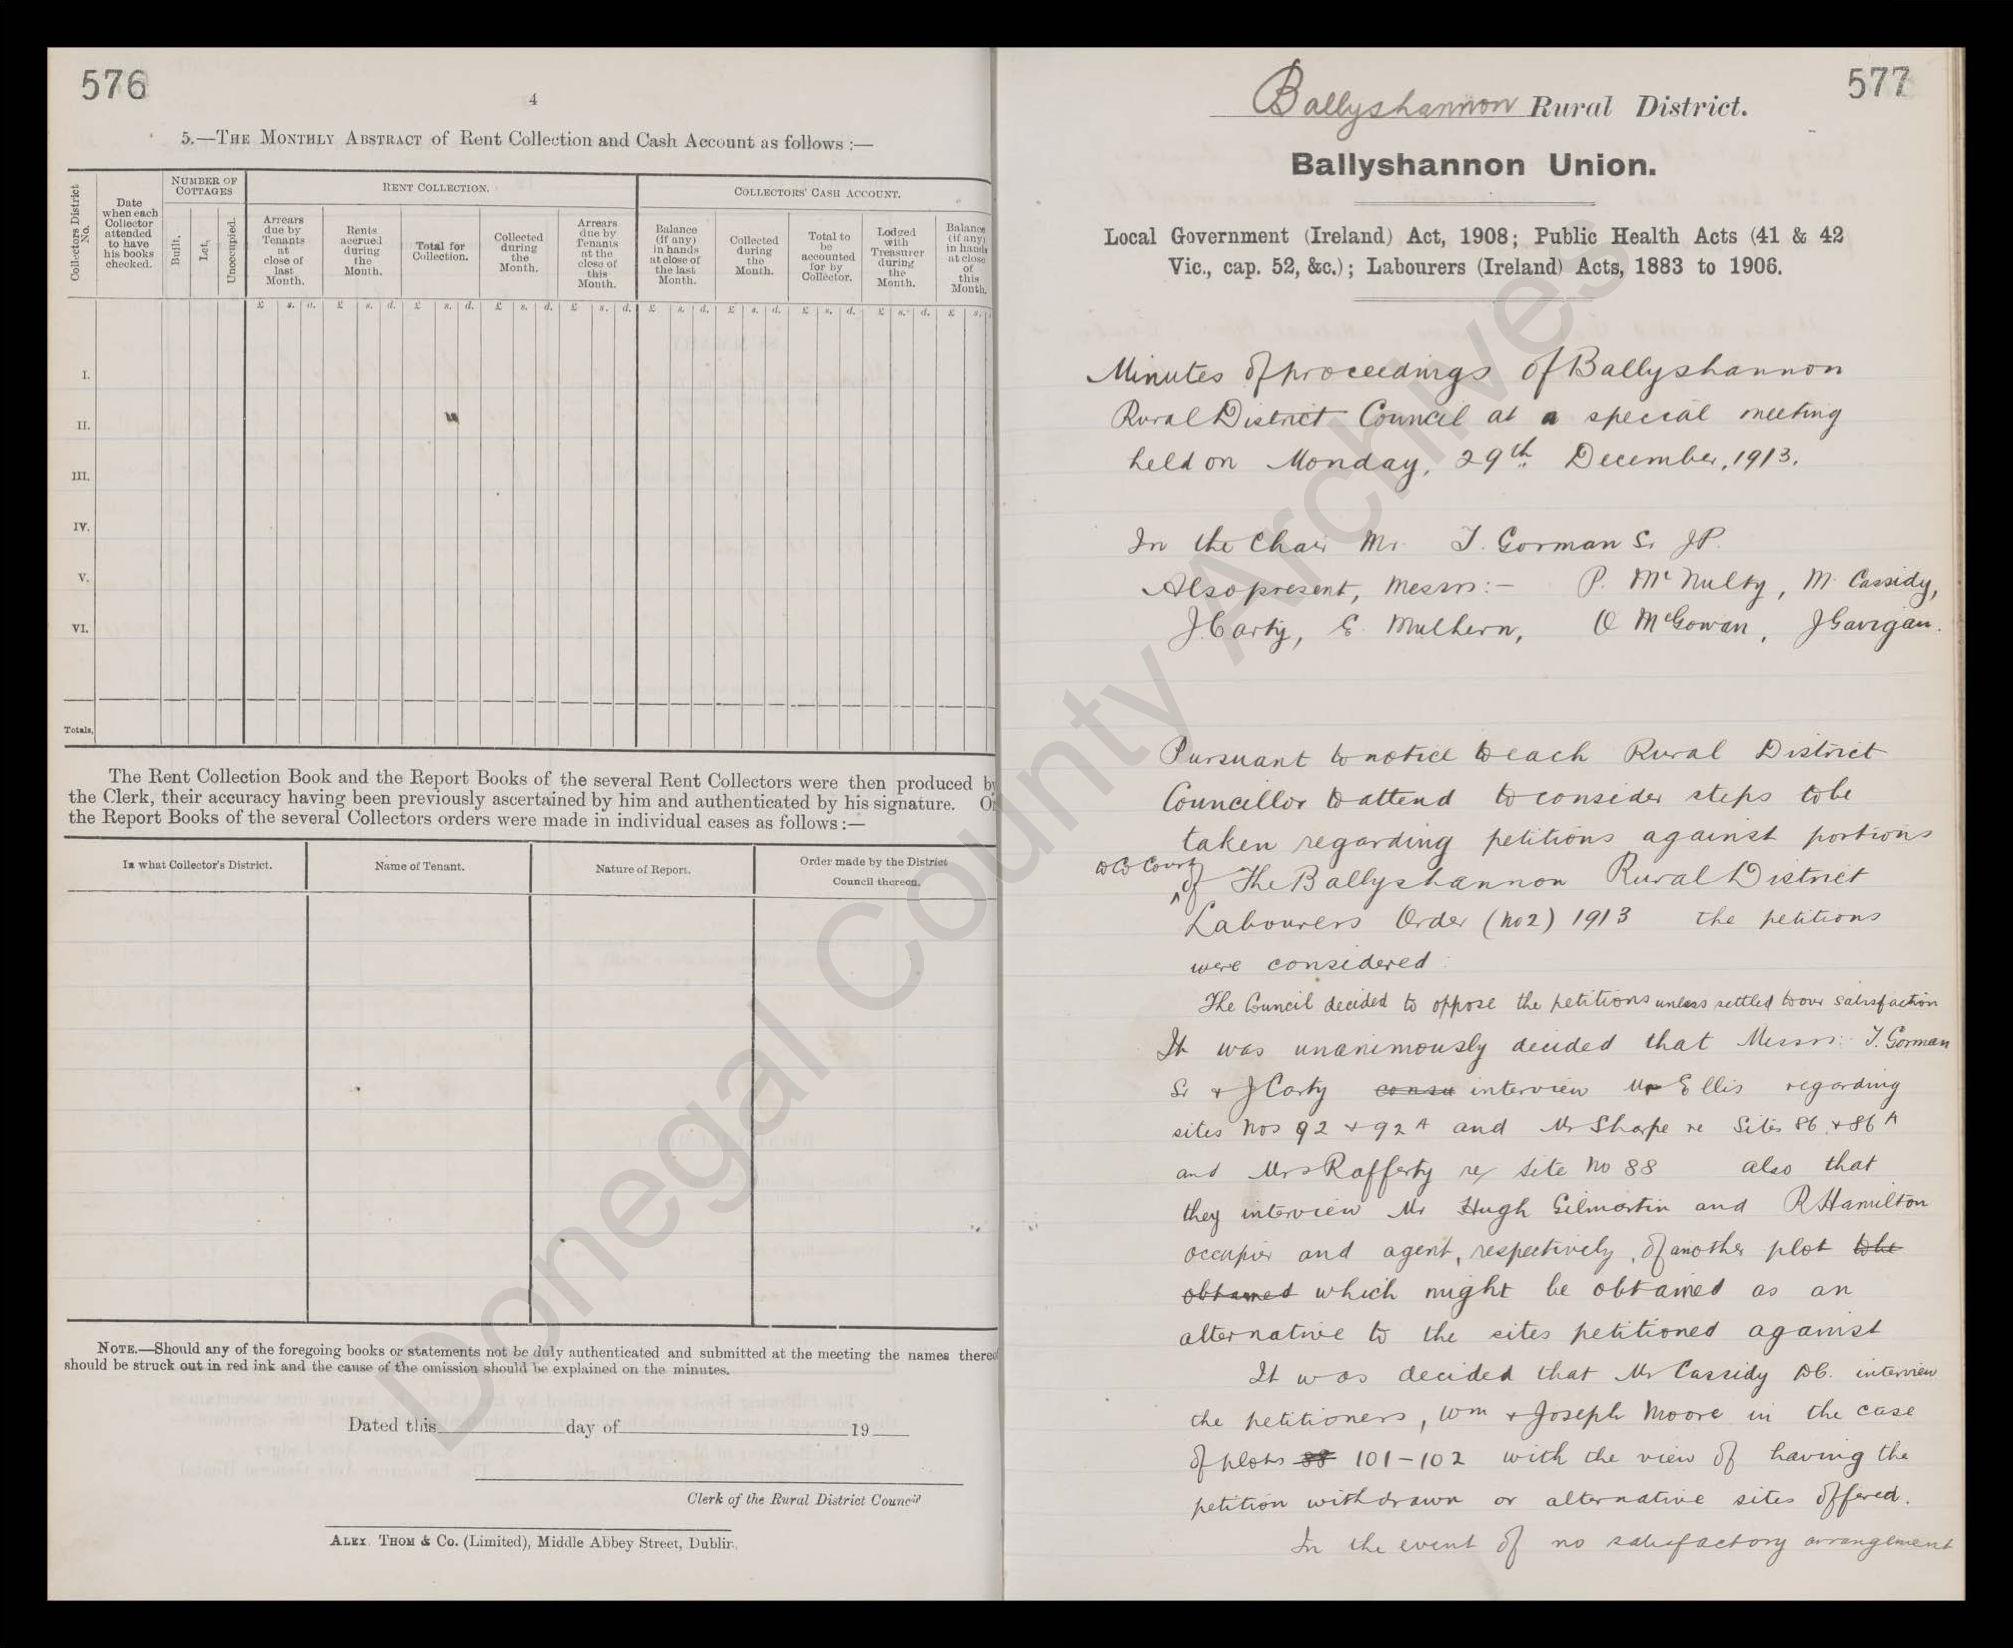 576
4
5.—THE MONTHLY ABSTRACT of Rent Collection and Cash Account as follows :—
Collectors District No.
Date when each Collector attended to have his books checked.
NUMBER OF COTTAGES
Built.
Let.
Unoccupied.
RENT COLLECTION.
Arrears due by Tenants at close of last Month.
Rents accrued during the Month.
Total for Collection.
Collected during the Month.
Arrears due by Tenants at the close of this Month.
COLLECTORS' CASH ACCOUNT.
Balance (if any) in hands at close of the last Month.
Collected during the Month.
Total to be accounted for by Collector.
Lodged with Treasurer during the Month.
Balance (if any) in hands at close of this Month.
£ s. d. £ s. d. £ s. d. £ s. d. £ s. d. £ s. d. £ s. d. £ s. d. £ s. d. £ s.
I.
II.
III.
IV.
V.
VI.
Totals,
The Rent Collection Book and the Report Books of the several Rent Collectors were then produced by
the Clerk, their accuracy having been previously ascertained by him and authenticated by his signature. O
the Report Books of the several Collectors orders were made in individual cases as follows :—
In what Collector's District.
Name of Tenant.
Nature of Report.
Order made by the District Council thereon.
NOTE.—Should any of the foregoing books or statements not be duly authenticated and submitted at the meeting the names thereo
should be struck out in red ink and the cause of the omission should be explained on the minutes.
Dated this day of 19
Clerk of the Rural District Council
ALEX. THOM & Co. (Limited), Middle Abbey Street, Dublin.
577
Ballyshannon Rural District.
Ballyshannon Union.
Local Government (Ireland) Act, 1908; Public Health Acts (41 & 42
Vic., cap. 52, &c.); Labourers (Ireland) Acts, 1883 to 1906.
Minutes of proceedings of Ballyshannon
Rural District Council at a special meeting
held on Monday, 29th December, 1913.
In the Chair Mr. T. Gorman Sr JP.
Also present, Messrs:- P. McNulty, M. Cassidy,
J Carty, E. Mulhern, O McGowan, J Gavigan.
Pursuant to notice to each Rural District
Councillor to attend to consider steps to be
taken regarding petitions against portions
of The Ballyshannon Rural District
Labourers Order (No 2) 1913 the petitions
were considered.
The Council decided to oppose the petitions unless settled to our satisfaction
It was unanimously decided that Messrs: T. Gorman
Sr & J Carty consu interview Mr Ellis regarding
sites Nos 92 & 92A and Mr Sharpe re Sites 86 & 86A
and Mrs Rafferty re/ site No 88 also that
they interview Mr Hugh Gilmartin and R Hamilton
occupier and agent, respectively, of another plot to be
obtained which might be obtained as an
alternative to the sites petitioned against
It was decided that Mr Cassidy DC. interview
the petitioners, Wm & Joseph Moore in the case
of plots 88 101-102 with the view of having the
petition withdrawn or alternative sites offered.
In the event of no satisfactory arrangement
Donegal County Archives